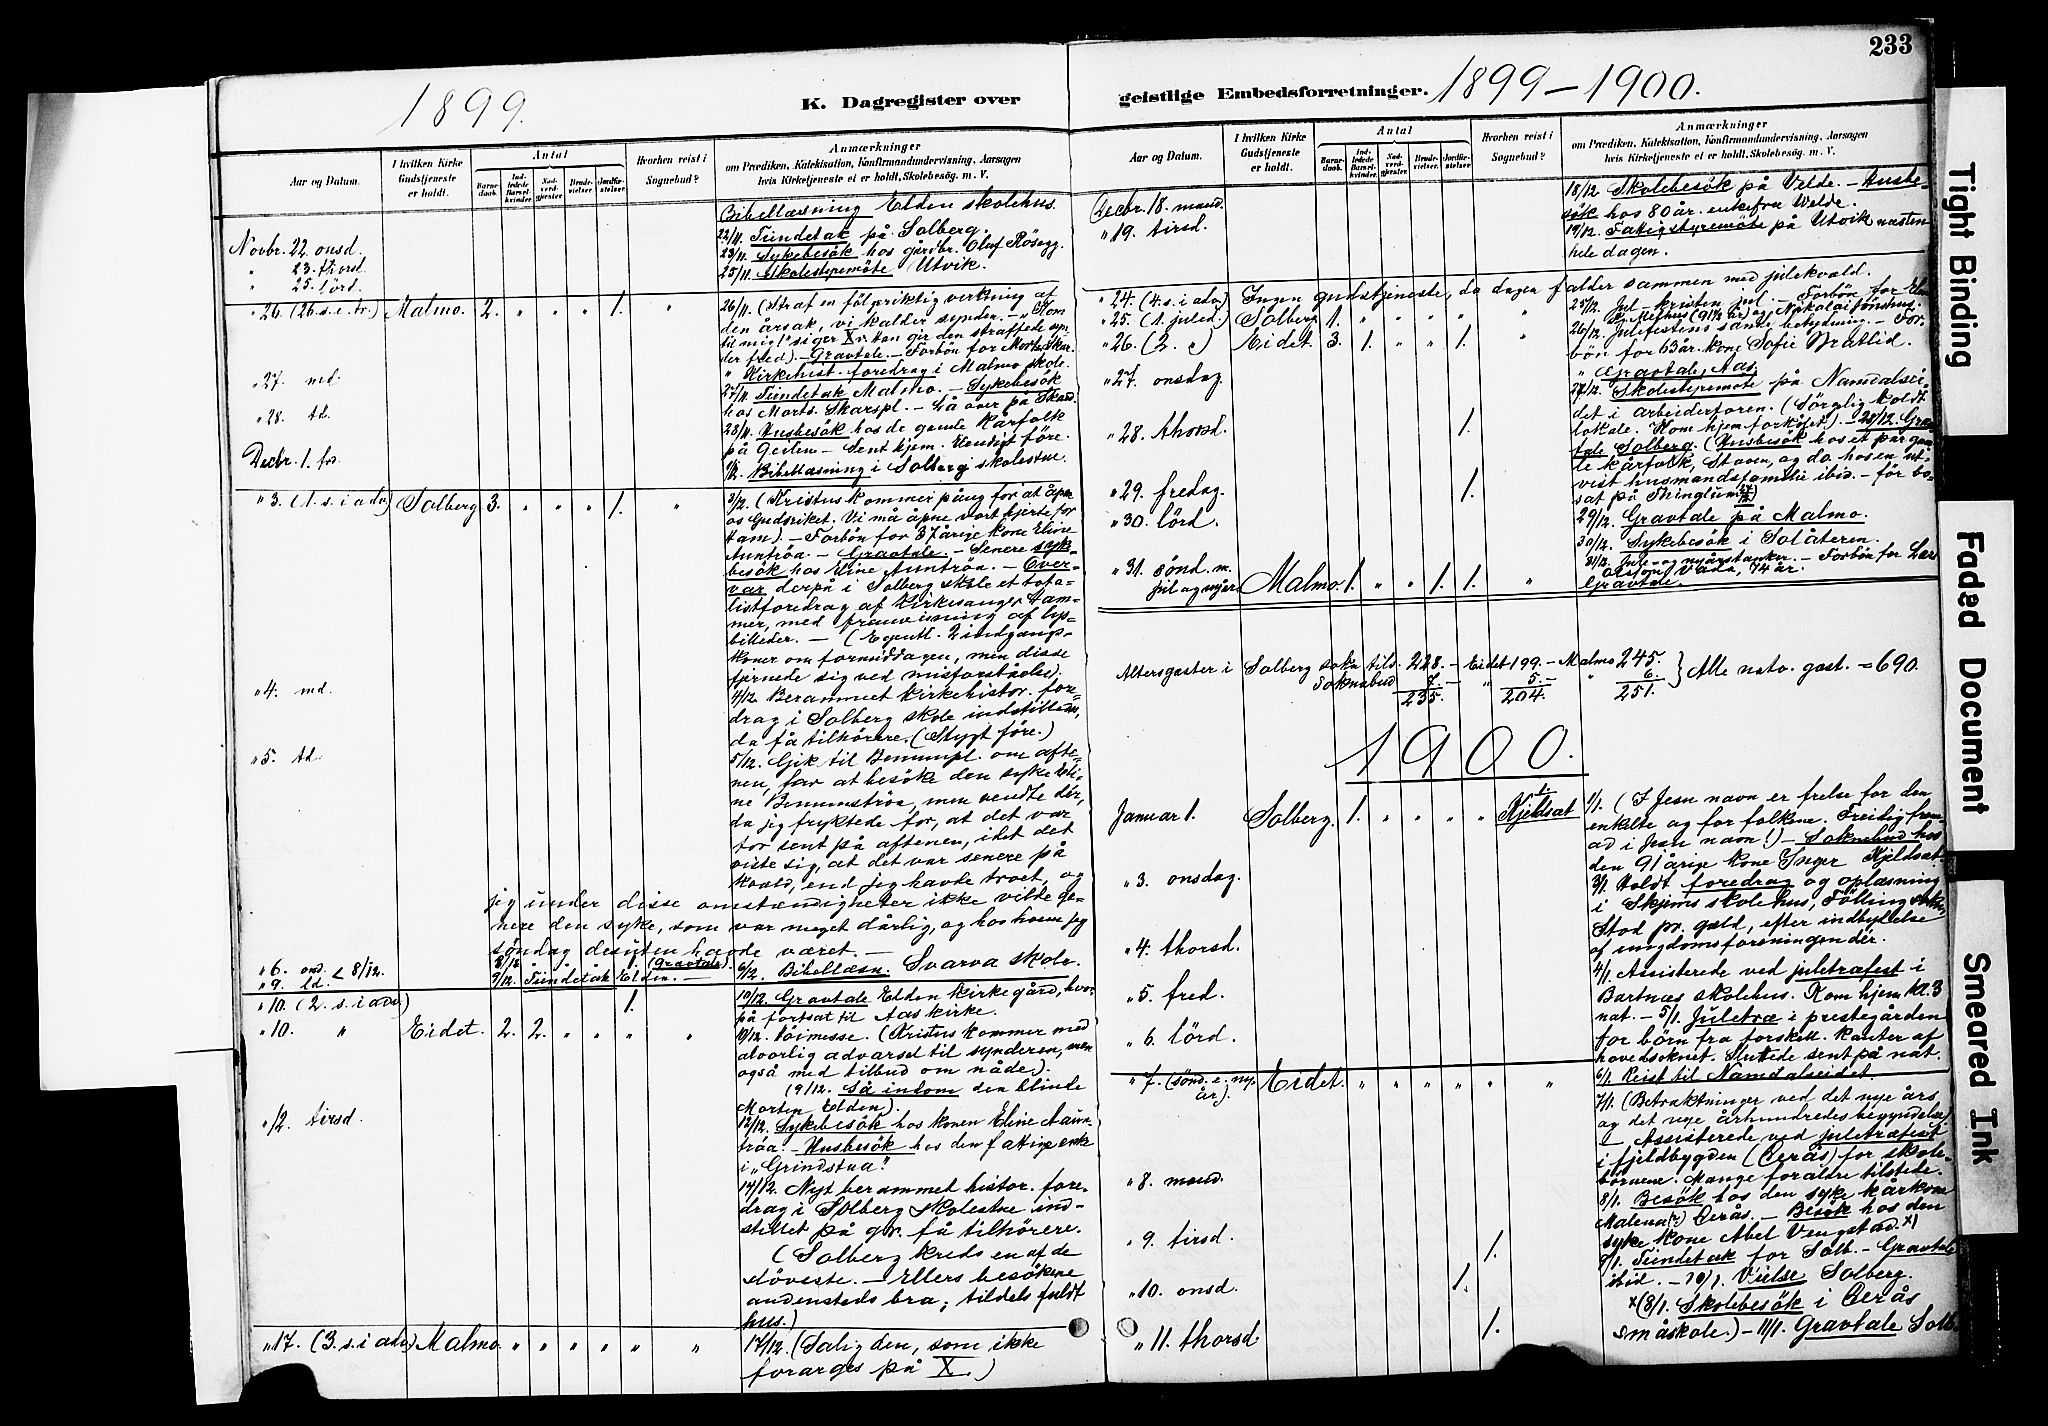 233
1899.
K. Dagregister over
geistlige Embedsforretninger. 1899-1900.
Aar og Datum.
I hvilken Kirke Gudstjeneste er holdt.
Antal
Barne-daab.
Ind-ledede Barsel-kvinder.
Nad-verd-gjester.
Brude-vielser.
Jordfæ-stelser.
Hvorhen reist i Sognebud?
Anmærkninger
om Prædiken, Katekisation, Konfirmandundervisning, Aarsagen
hvis Kirketjeneste ei er holdt, Skolebesøg. m. V.
Bibellæsning Elden skolehus.
Novbr. 22 onsd. 22/11. Tiindetak på Solberg.
" 23. thorsd. 23/11. Sykebesök hos gårdbr. Oluf Rösegg.
" 25. lörd. 25/11. Skolestyremöte Utvik.
" 26. (26. s. e. tr.) Malmo. 2. " " " 1. " 26/11. (Straf en fölgeriktig virkning af
den årsak, vi kalder synden. – "Kom
til mig!" siger X; han gir den straffede syn-
der fred). – Gravtale. – Forbön for Morts. Skar.
" Kirkehist. foredrag i Malmo skole.
" 27. md. 27/11. Tiindetak Malmo. – Sykebesök
hos Morts. Skarspl. – Lå over på
" 28. td. 28/11. Husbesök hos de gamle kårfolk
på Geilen – Sent hjem. Elendigt före.
Decbr. 1. fr. 1/12. Bibellæsning i Solberg skolestue.
" 3. (1. s. i adv.) Solberg 3. " " " 1. " 3/12. (Kristus kommer påny for at åpne
os Gudsriket. Vi må åpne vort hjerte for
ham). – Forbön for 37 årige kone Eline
Auntröa. – Gravtale. – Senere syke-
besök hos Eline Auntröa. – Over-
var derpå i Solberg skole et tota-
listforedrag af Kirkesanger Ham-
mer, med fremvisning af lys-
billeder. – (Egentl. 2 indgangs-
koner om formiddagen, men disse
fjernede sig ved misforståelse).
" 4. md. 4/12. Berammet Kirkehistor. fore-
drag i Solberg skole indstilledes,
da få tilhörere. (Stygt före.)
" 5. td. 5/12. Gik til Benumpl. om afte-
nen, for at besöke den syke Eli-
ne Benumströa, men vendte dér,
da jeg fryktede for, at det var
for sent på aftenen, idet det
viste sig, at det var senere på
kvæld, end jeg havde troet, og
jeg under disse omstændigheter ikke vilde ge-
nere den syke, som var meget dårlig, og hos hvem jeg
söndag desuten havde været. –
" 6. ond. < 8/12. 8/12 1. (Gravtale). 6/12. Bibellæsn. Svarva skole.
" 9. ld. 9/12. Tiindetak Elden. –
" 10. (2. s. i adv.) 1. 10/12. Gravtale Elden Kirkegård, hvor-
på fortsat til Aas kirke.
" 10. " Eidet. 2. 2. " " " " 10/12. Höimesse. (Kristus kommer med
alvorlig advarsel til synderen, men
også med tilbud om nåde).
(9/12. Så indom den blinde
Morten Elden).
" 12. tirsd. 12/12. Sykebesök hos konen Eline Aaun-
tröa. – Husbesök hos den fattige enke
i "Grindstua".
14/12. Nyt berammet histor. fore-
drag i Solberg skolestue ind-
stillet på gr. få tilhörere.
(Solberg kreds en af de
döveste. – Ellers besökene
andensteds bra, tildels fuldt
hus.)
" 17. (3. s. i adv.) Malmo. " " " " " " 17/12. (Salig den, som ikke
forarges på X)
Aar og Datum.
I hvilken Kirke Gudstjeneste er holdt.
Antal
Barne-daab.
Ind-ledede Barsel-kvinder.
Nad-verd-gjester.
Brude-vielser.
Jordfæ-stelser.
Hvorhen reist i Sognebud?
Anmærkninger
om Prædiken, Katekisation, Konfirmandundervisning, Aarsagen
hvis Kirketjeneste ei er holdt, Skolebesög. m. V.
Decbr. 18. mand. 18/12. Skolebesök på Velde. – Husbe-
sök hos 80 år. enkefra Welde.
" 19. tirsd. 19/12. Fattigstyremöte på Utvik næsten
hele dagen.
" 24. (4. s. i adv.) Ingen gudstjeneste, da dagen falder sammen med julekvæld.
" 25. (1. juled.) Solberg 1. " " " " " 25/12. Jul – kristen jul. – Forbön for
Melhus (91 1/2 år) og Nikolai Tönshus.
" 26. (2. ") Eidet. 3. 1. " " 1. " 26/12. Julefestens sande betydning. – For-
bön for 63 år. kone Sofie Bratlid.
" Gravtale, Aas.
" 27. onsdag. 27/12. Skolestyremöte på Namdalsei-
det i arbeiderforen. (Sörgelig koldt
lokale. Kom hjem forkjölet). – 28/12. Grav-
" 28. thorsd. 1. tale Solberg. (Husbesök hos et par gam-
le kårfolk, Staum, og do. hos en
husmandsfamilie ibid. – för be-
sat på Thinglum)
" 29. fredag. 1. 29/12. Gravtale på Malmo.
" 30. lörd. 30/12. Sykebesök i Solåteren.
" 31. sönd. m. jul og nyår. Malmo. 1. " " 1. 1. " 31/12. Jule- og nyårstanker. – Forbön for Lars
Olsson Våda, 74 år.
Gravtale.
Altersgaster i Solberg sokn tils. 228. – Eidet 199. – Malmo 245. } Alle natv. gast. = 690.
Soknebud 7. – " 5. – " 6.
235. 204. 251.
1900.
Januar 1. Solberg. 1. " " " " Kjeldsat 1/1. (I Jesu navn er frelse for den
enkelte og for folkene. Freidig frem-
ad i Jesu navn!) – Soknebud hos
den 91 årige kone Inger Kjeldsat.
" 3. onsdag. 3/1. Holdt foredrag og oplæsning
i Skjems skolehus, Fölling sokn,
Stod pr. gæld, efter indbydelse
af ungdomsforeningen dér.
" 4. thorsd. 4/1. Assisterede ved juletræfest i
Bartnæs skolehus. Kom hjem kl. 3
" 5. fred. nat. – 5/1. Juletræ i prestegården
for börn fra forskell. kanter af
hovedsoknet. Sluttede sent på nat.
" 6. lörd. 6/1. Reist til Namdalseidet.
" 7. (sönd. e. nyår). Eidet. " " " " " " 7/1. (Betraktninger ved det nye års
og det nye århundredes begyndelse)
– Assisterede ved juletræfest
i fjeldbygden (Aerås) for skole-
börnene. Mange forældre tilstede.
" 8. mand. 8/1. Besök hos den syke kårkone
Malena(?) Aerås. – Besök hos den
syke kone Abel Vengstad. x)
" 9. tirsd. 1. 9/1. Tiindetak for Solb. – Gravtale
ibid. – 10/1. Vielse Solberg.
" 10. onsd. 1. x(8/1. Skolebesök i Aerås
småskole.) – 11/1. Gravtale Solb.
" 11. thorsd. 1.
Tight Binding
Faded Document
Smeared Ink